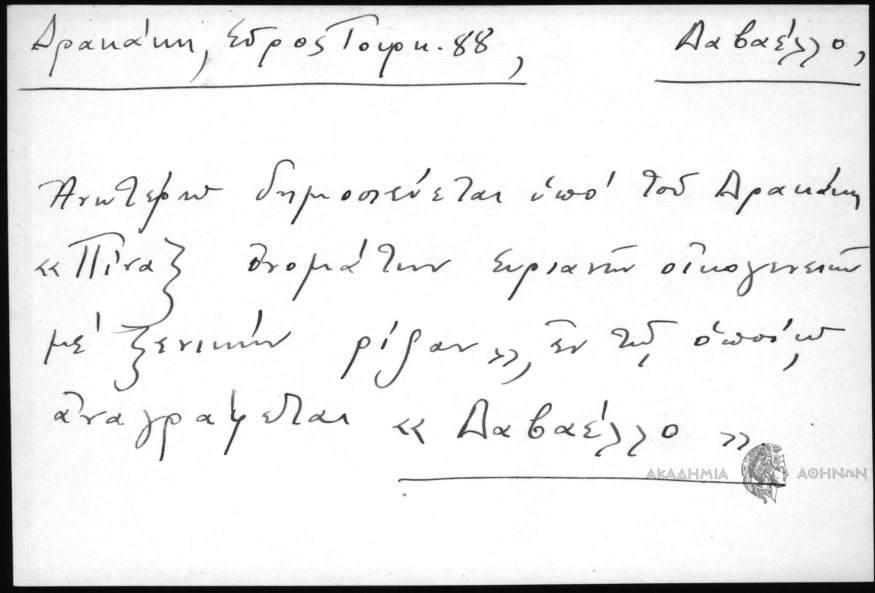 Δρακάκη, Σῦρος Τουρκ. 88, Δαβαέλλο,
Ἀνωτέρω δημοσιεύεται ὑπό τοῦ Δρακάκη
« Πίναξ ὀνομάτων Συριανῶν οἰκογενειῶν
μέ ξενικήν ρίζαν », ἐν τῷ ὁποίῳ
ἀναγράφεται « Δαβαέλλο ».
ΑΚΑΔΗΜΙΑ ΑΘΗΝΩΝ